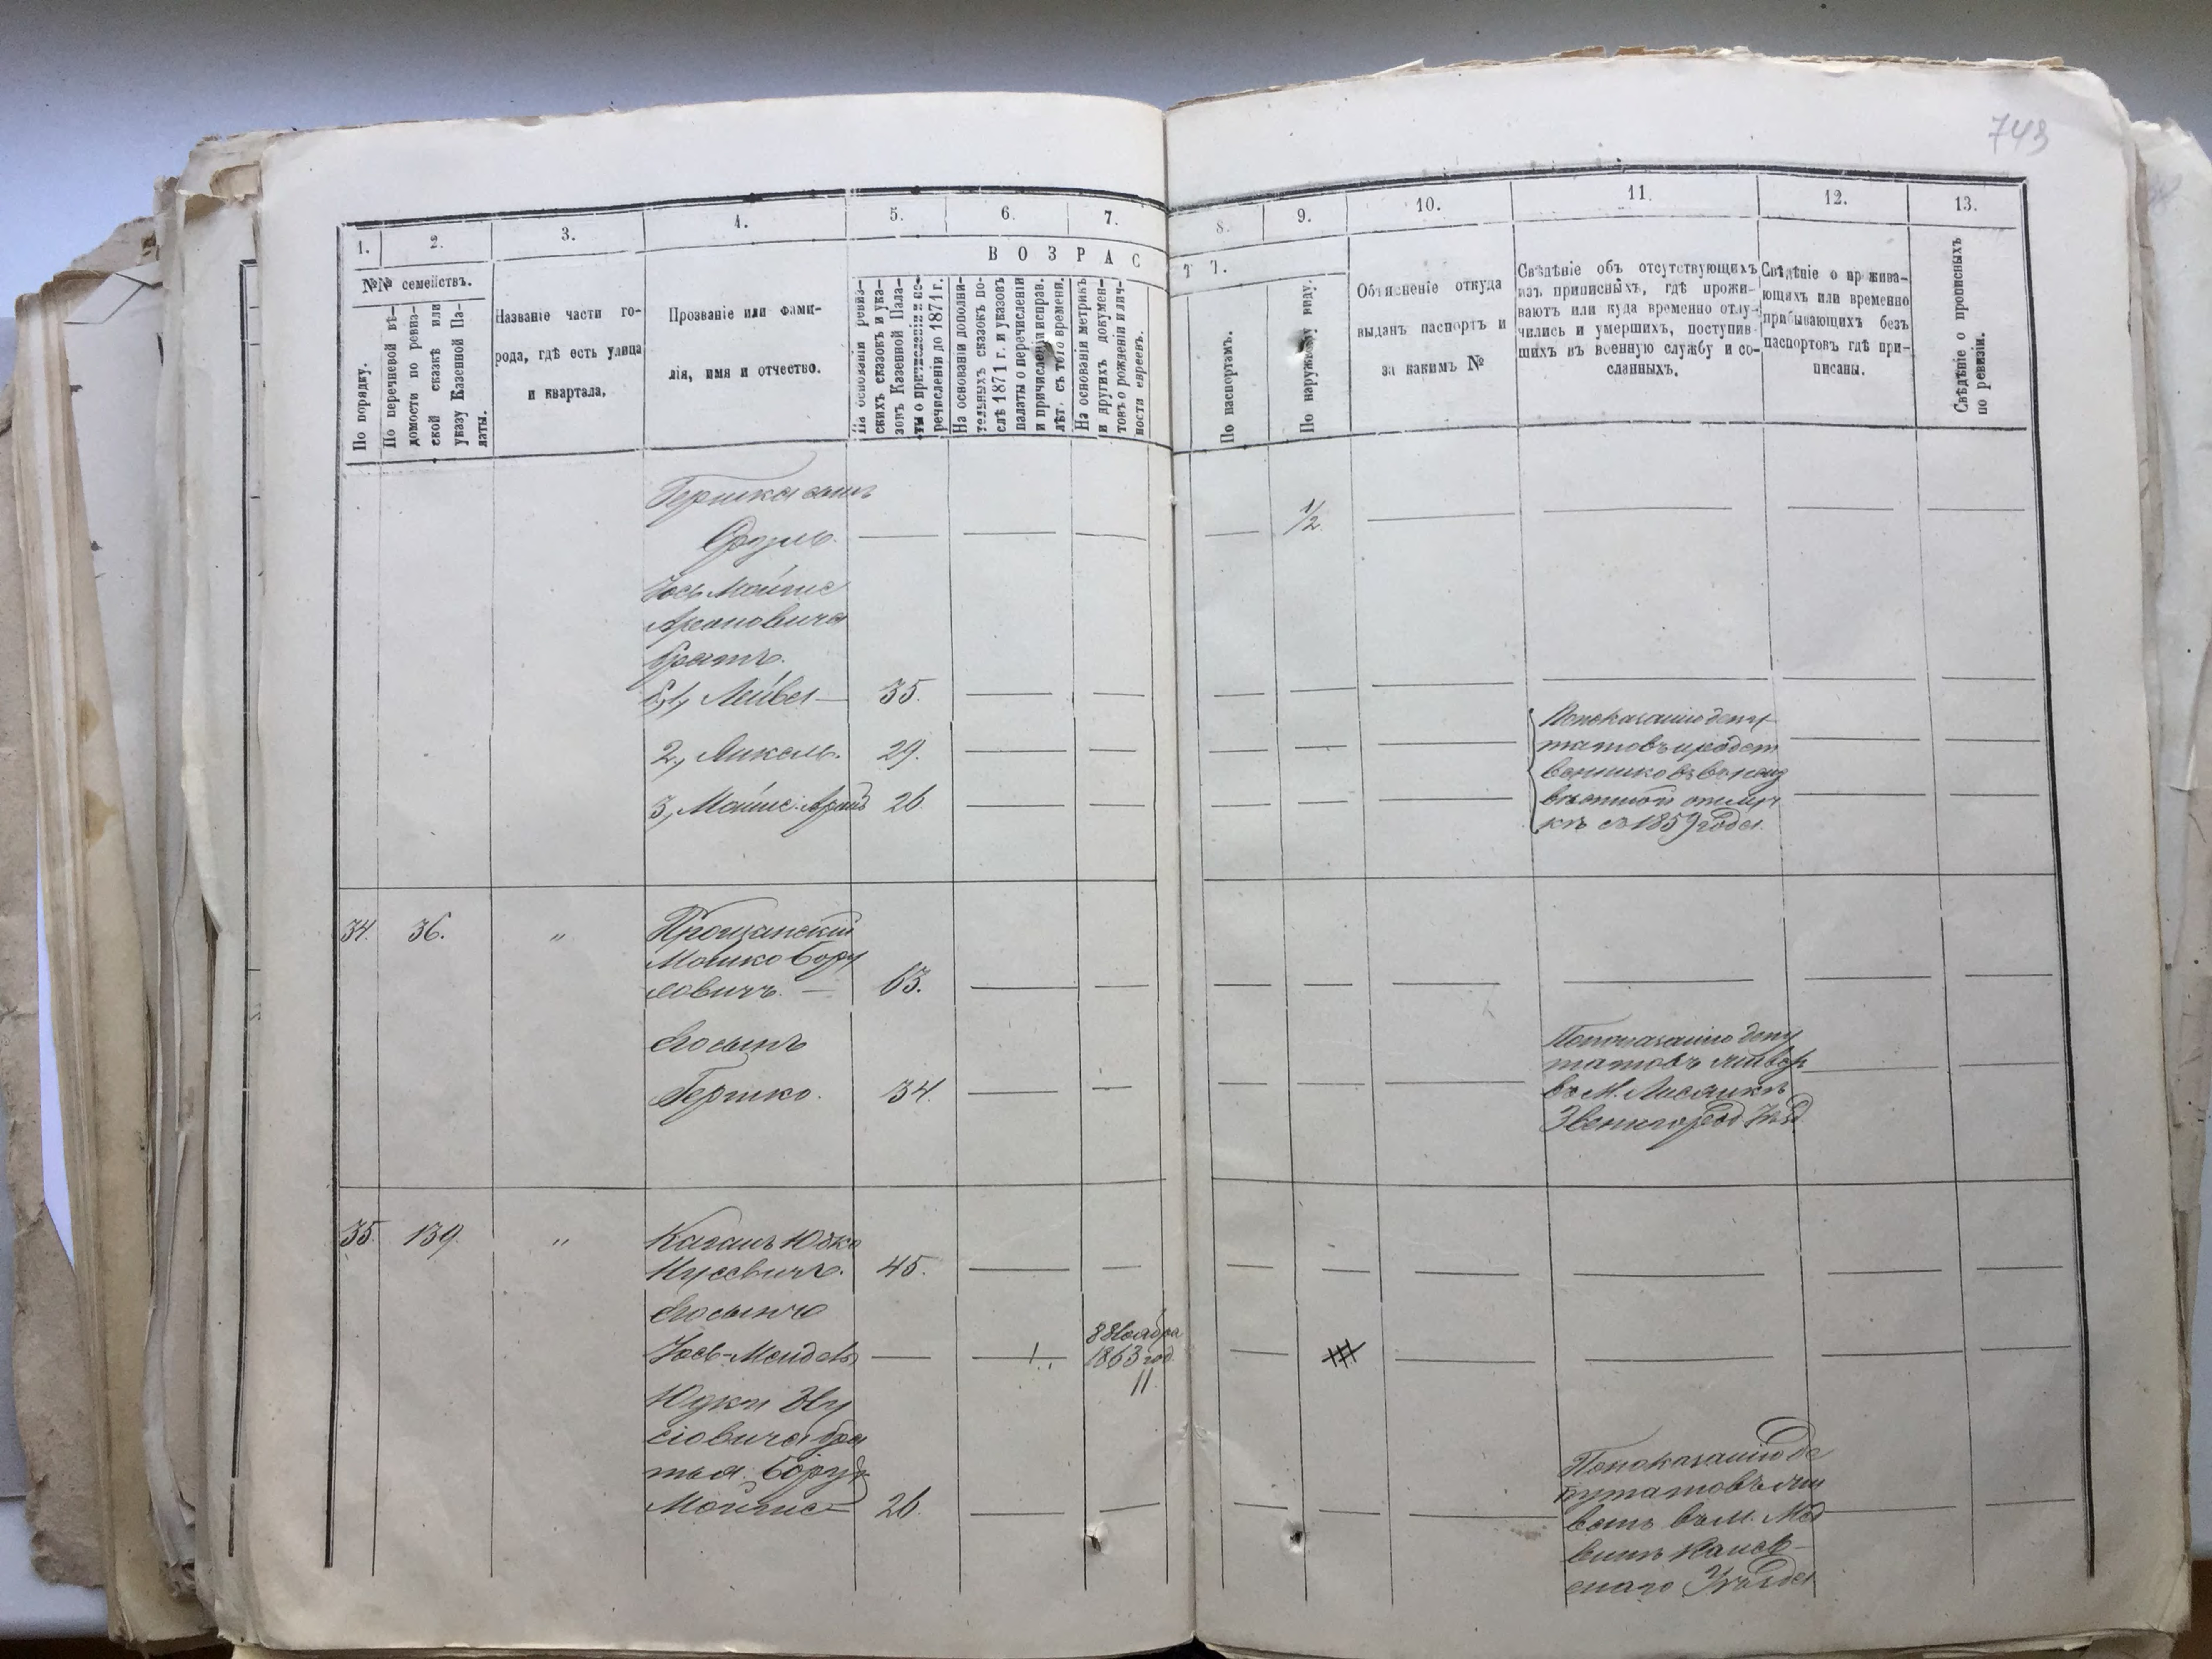 743
1.
2.
3.
4.
5.
6.
7.
8.
9.
10.
11.
12.
13.
№№ семействъ.
По порядку.
По перечневой вѣ-
домости по ревиз-
ской сказкѣ или
указу Казенной Па-
латы.
Названіе части го-
рода, гдѣ есть улица
и квартала,
Прозваніе или фами-
лія, имя и отчество.
ВОЗРАС
ТЪ.
На основаніи ревиз-
скихъ сказокъ и ука-
зовъ Казенной Пала-
ты о причисленіи и пе-
речисленіи до 1871 г.
На основаніи дополни-
тельныхъ сказокъ по-
слѣ 1871 г. и указовъ
палаты о перечисленіи
и причисленіи исправ.
лѣт. съ того времени.
На основаніи метрикъ
и другихъ докумен-
товъ о рожденіи и лич-
ности евреевъ.
По паспортамъ.
По наружному виду.
Объясненіе откуда
выданъ паспортъ и
за какимъ №
Свѣдѣніе объ отсутствующихъ
изъ приписныхъ, гдѣ прожи-
ваютъ или куда временно отлу-
чились и умершихъ, поступив-
шихъ въ военную службу и со-
сланныхъ.
Свѣдѣніе о прожива-
ющихъ или временно
прибывающихъ безъ
паспортовъ гдѣ при-
писаны.
Свѣдѣніе о прописныхъ
по ревизіи.
Гершка сынъ
Сруль. 1/2
Іось Мойше
Ароновича
братъ.
1, Лейба 35.
2, 29.
3, Мойше Аронъ 26
По показанію депу
татовъ и родст
венниковъ въ неиз
вѣстной отлуч
кѣ съ 1859 года.
34. 36. "
Мошко Бору
ховичъ. 63.
Его сынъ
Гершко. 34.
По показанію депу
татовъ
въ М. Лисянкѣ
Звенигород Уѣзд.
35. 139. "
Каганъ Юдко
Нусевичъ. 45.
Его сынъ
Іось-Мендель
8 Ноября
1863 год.
11
Юдки Ну
сіовича бра
тья: Борух
Мойше 26
По показанію де
путатовъ жи
ветъ въ М. Мед
винѣ Канев-
скаго Уѣзда